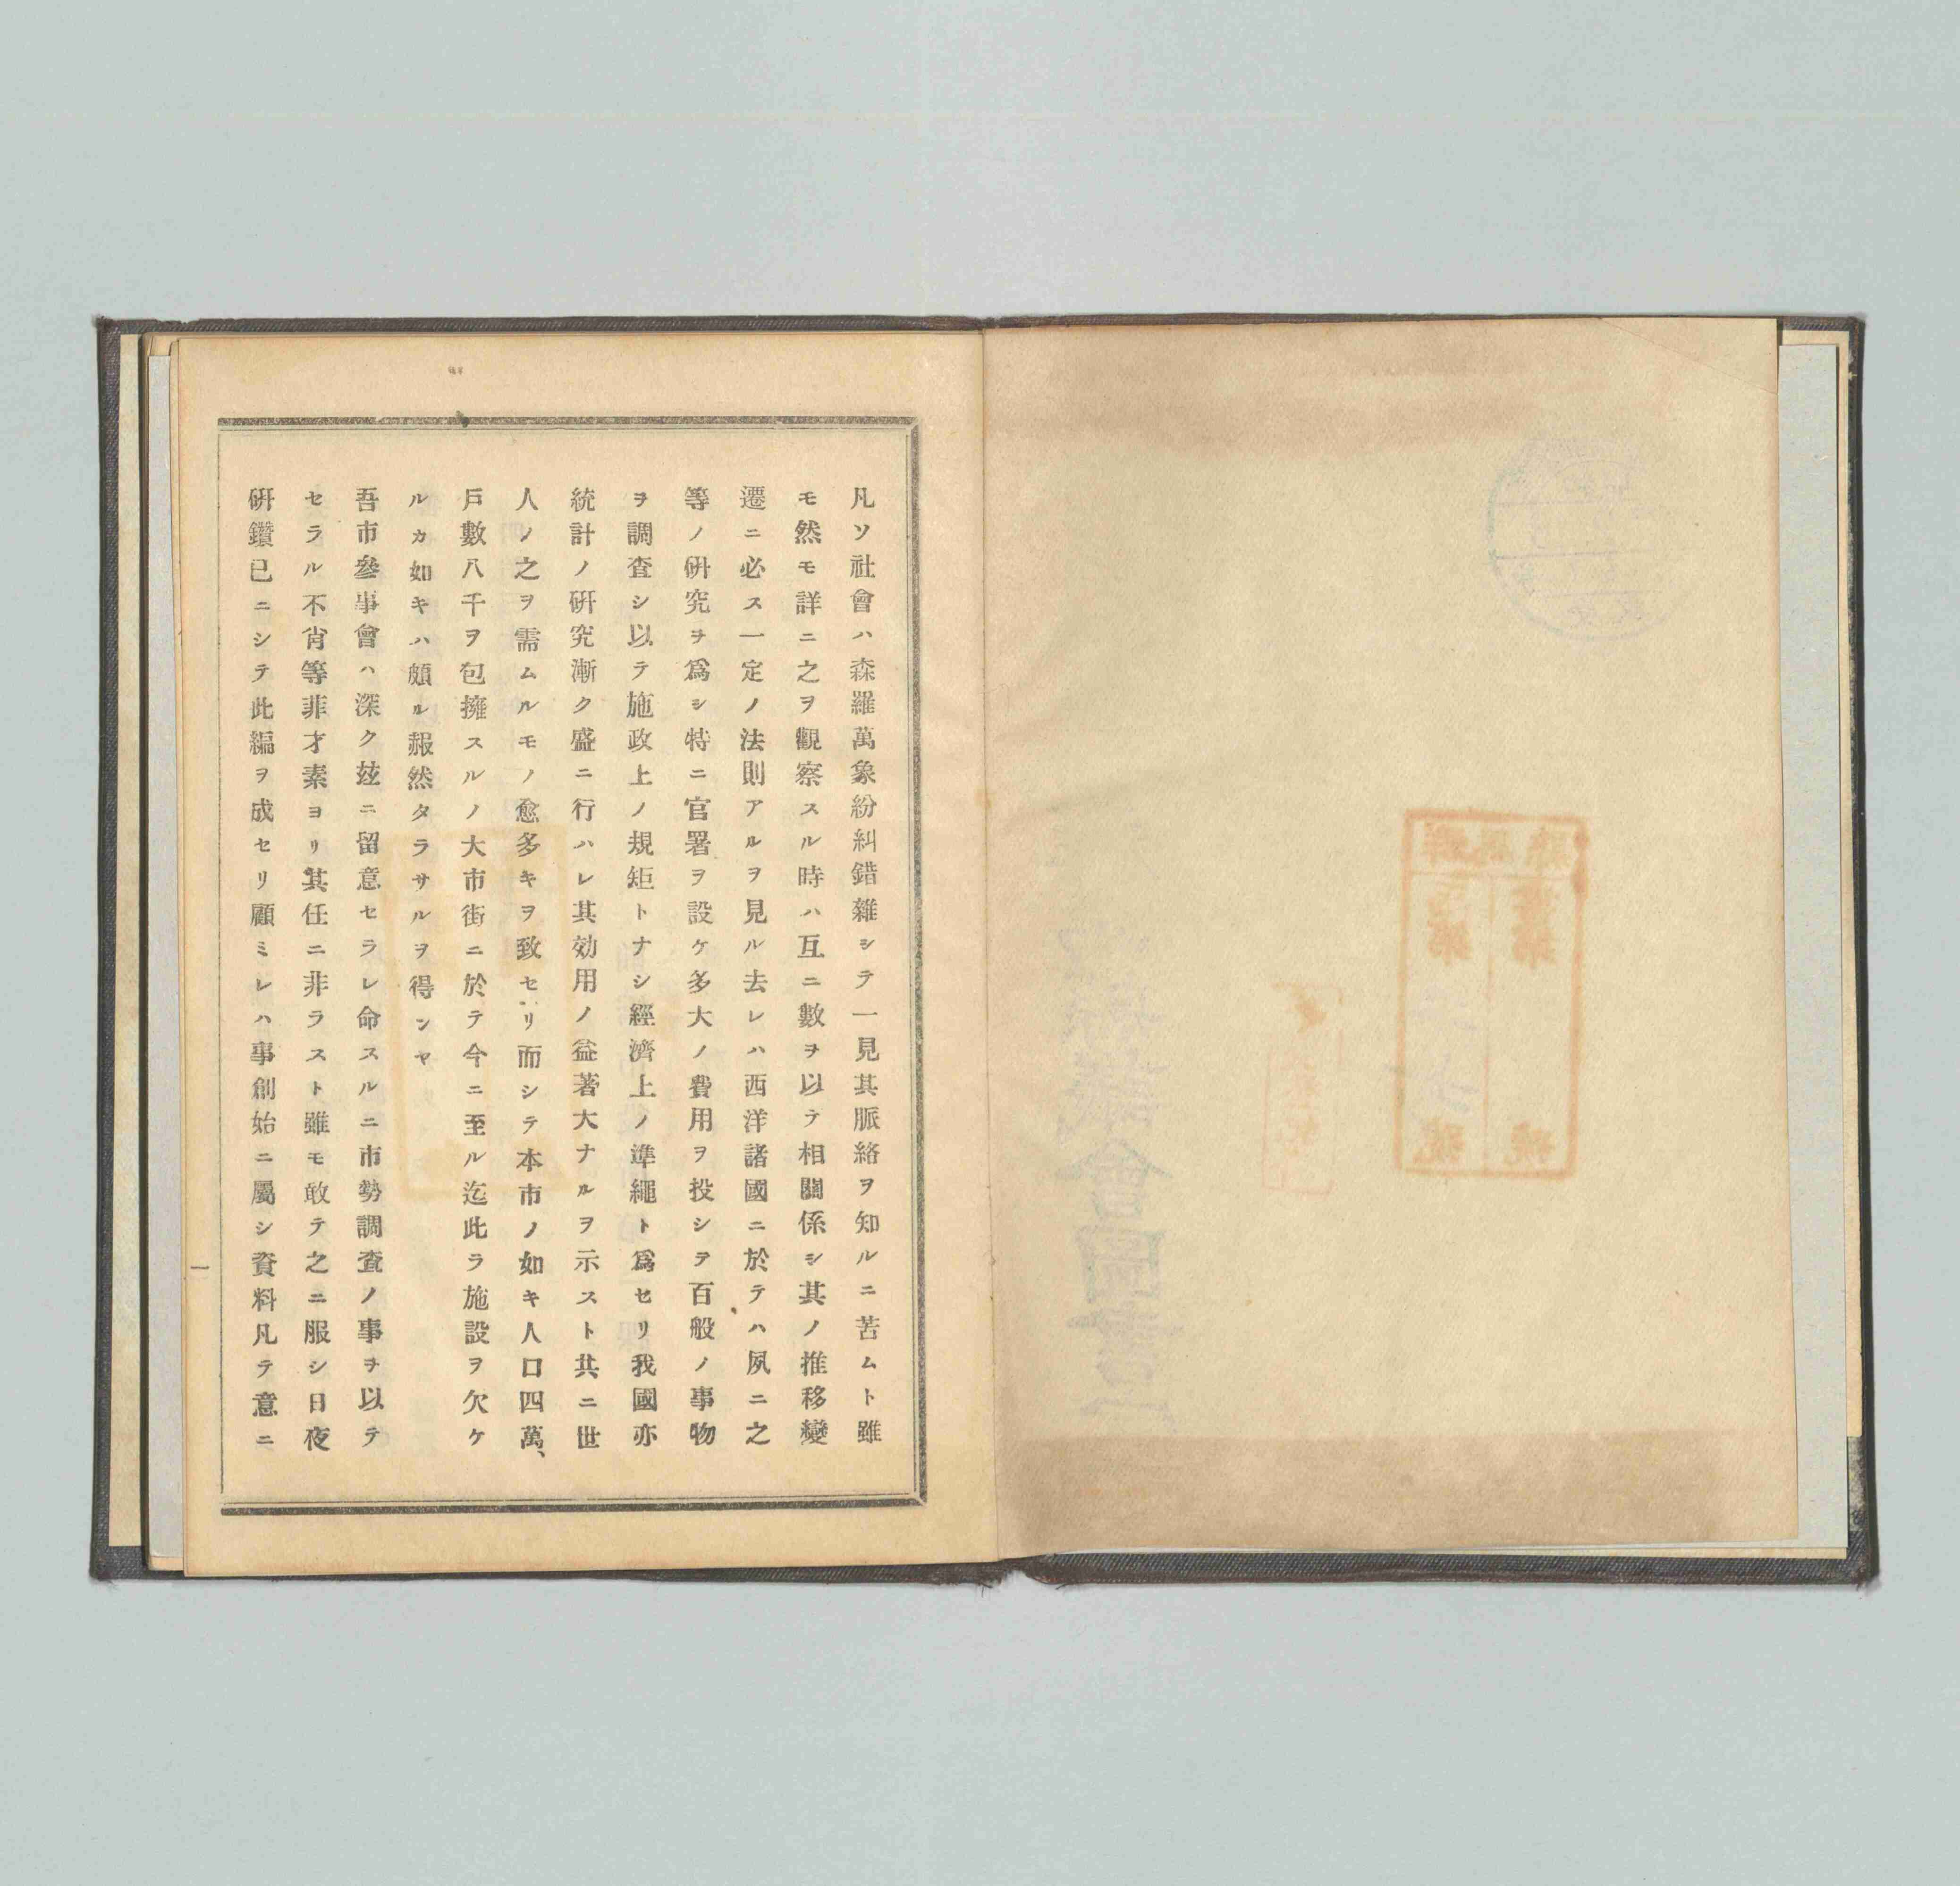 凡ソ社會ハ森羅萬象紛糾錯雜シテ一見其脈絡ヲ知ルニ苦ムト雖
モ然モ詳ニ之ヲ觀察スル時ハ互ニ數ヲ以テ相關係シ其ノ推移變
遷ニ必ス一定ノ法則アルヲ見ル去レハ西洋諸國ニ於テハ夙ニ之
等ノ硏究ヲ爲シ特ニ官署ヲ設ケ多大ノ費用ヲ投シテ百般ノ事物
ヲ調査シ以テ施政上ノ規矩トナシ經濟上ノ準繩ト爲セリ我國亦
統計ノ硏究漸ク盛ニ行ハレ其効用ノ益著大ナルヲ示スト共ニ世
人ノ之ヲ需ムルモノ愈多キヲ致セリ而シテ本市ノ如キ人口四萬、
戶數八千ヲ包擁スルノ大市街ニ於テ今ニ至ル迄此ラ施設ヲ欠ケ
ルカ如キハ頗ル赧然タラサルヲ得ンヤ
吾市參事會ハ深ク玆ニ留意セラレ命スルニ市勢調査ノ事ヲ以テ
セラル不肖等菲才素ヨリ其任ニ非ラスト雖モ敢テ之ニ服シ日夜
硏鑽已ニシテ此編ヲ成セリ顧ミレハ事創始ニ屬シ資料凡テ意ニ
一